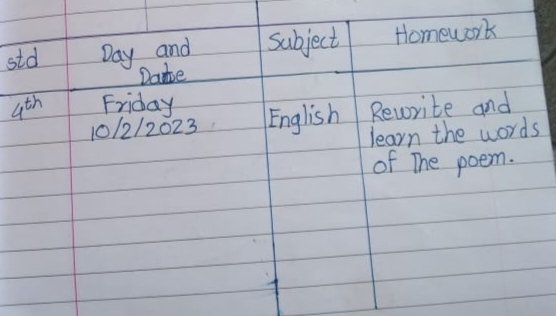 std Day and Date Subject Homework
4th Friday 10/2/2023 English Rewrite and
learn the words
of The poem.